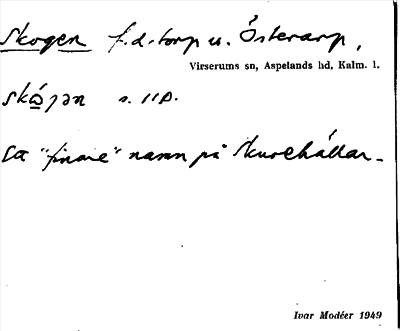 Skogen f.d. torp u. Österarp,
Virserums sn, Aspelands hd, Kalm. l.
skóǥən s. 11p.
Ett "finare" namn på Skurehållar.
Ivar Modéer 1949